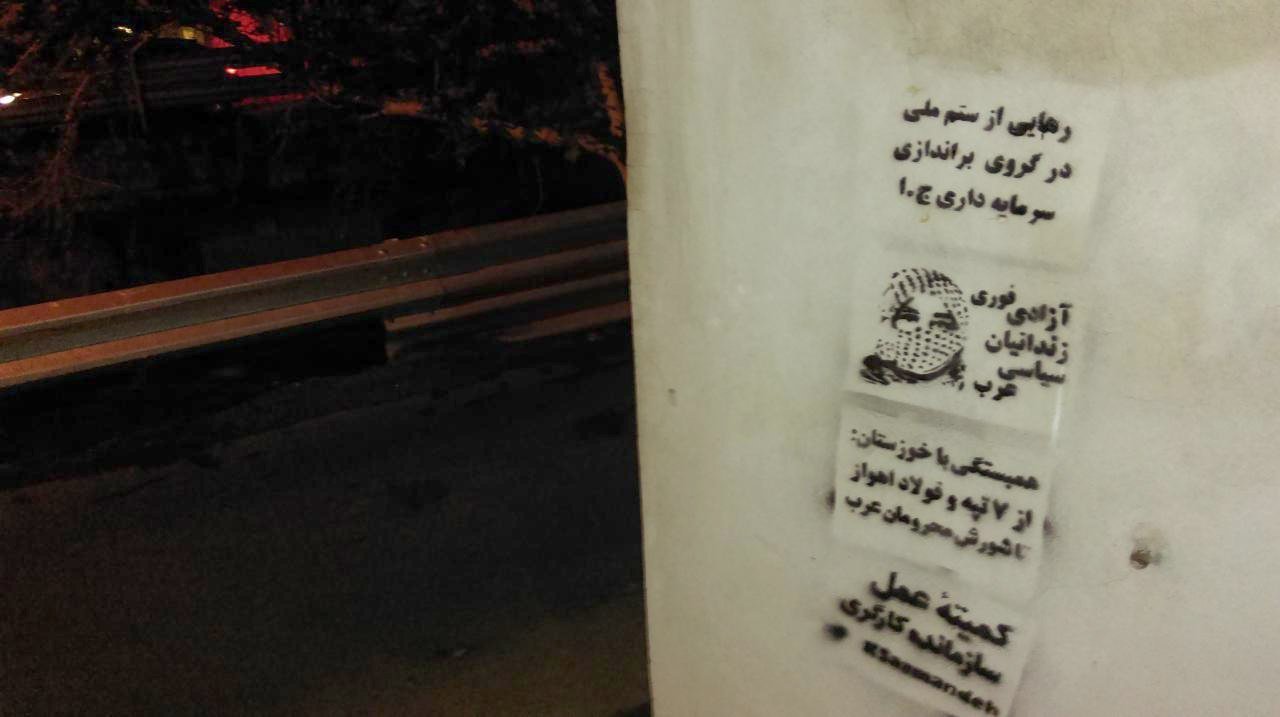 رهایی از ستم ملی
در گروی براندازی
سرمایه داری ج.ا
آزادی فوری
زندانیان
سیاسی
عرب
همبستگی با خوزستان:
از ۷ تپه و فولاد اهواز
تا شورش محرومان عرب
کمیتهٔ عمل
سازمانده کارگری
KSazmandeh